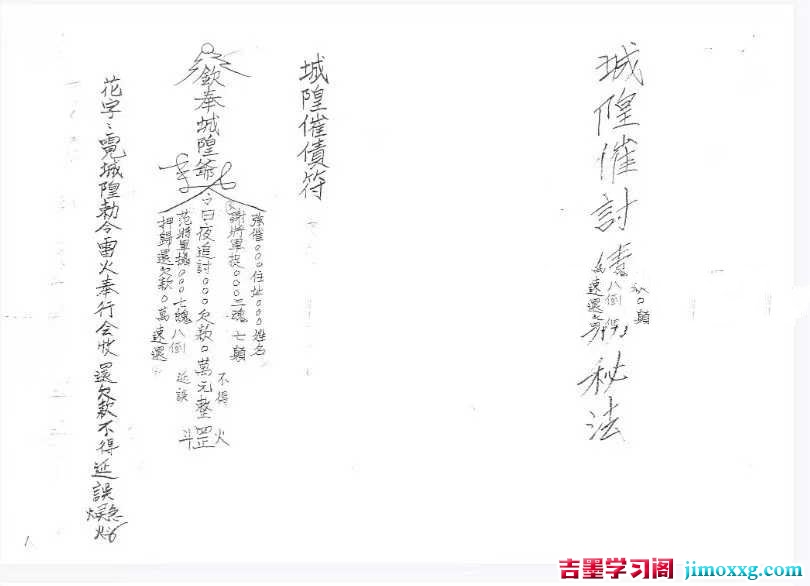 城隍催討債務秘法
城隍催債符
欽奉城隍爺令日夜追討○○○欠款○萬元整
強催○○○住址○○○姓名
謝將軍捉○○○三魂七顛
范將軍攝○○○七魄八倒
押歸還欠款○萬速還
不得
延誤
火罡斗
花字：
城隍勅令雷火奉行会收還欠款不得延誤
吉墨学习阁 jimoxxg.com